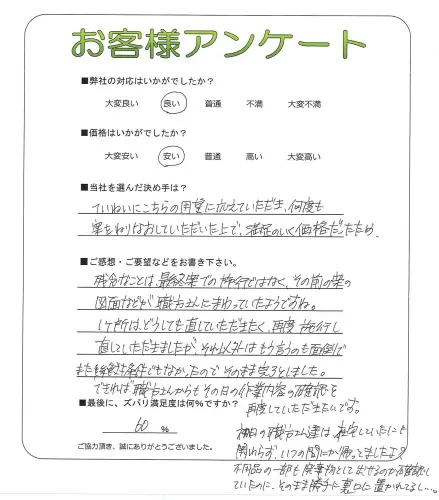 お客様アンケート
■弊社の対応はいかがでしたか？
大変良い 良い 普通 不満 大変不満
■価格はいかがでしたか？
大変安い 安い 普通 高い 大変高い
■当社を選んだ決め手は？
ていねいにこちらの用望に応えていただき、何度も
案をねりなおしていただいた上で、満足のいく価格だったため。
■ご感想・ご要望などをお書き下さい。
残念なことは最終案での施行ではなく、その前の案の
図面などが職方さんにまわっていたようですね。
1ヶ所は、どうしても直していただきたく、再度施行し
直していただきましたが、それ以外はもう言うのも面倒で
また絶対条件でもなかったのでそのまま完了としました。
できれば職方さんからもその日の作業内容の確認を
■最後に、ズバリ満足度は何％ですか？
再度していただきたいです。
60 ％
初日の職方さん達は、在宅していたにも
関わらず、いつの間にか帰ってましたよ？
ご協力頂き、誠にありがとうございました。
不用品の一部も廃棄物として出せるのか確認し
ていたのに、そのまま勝手に裏口に置かれてるし…。